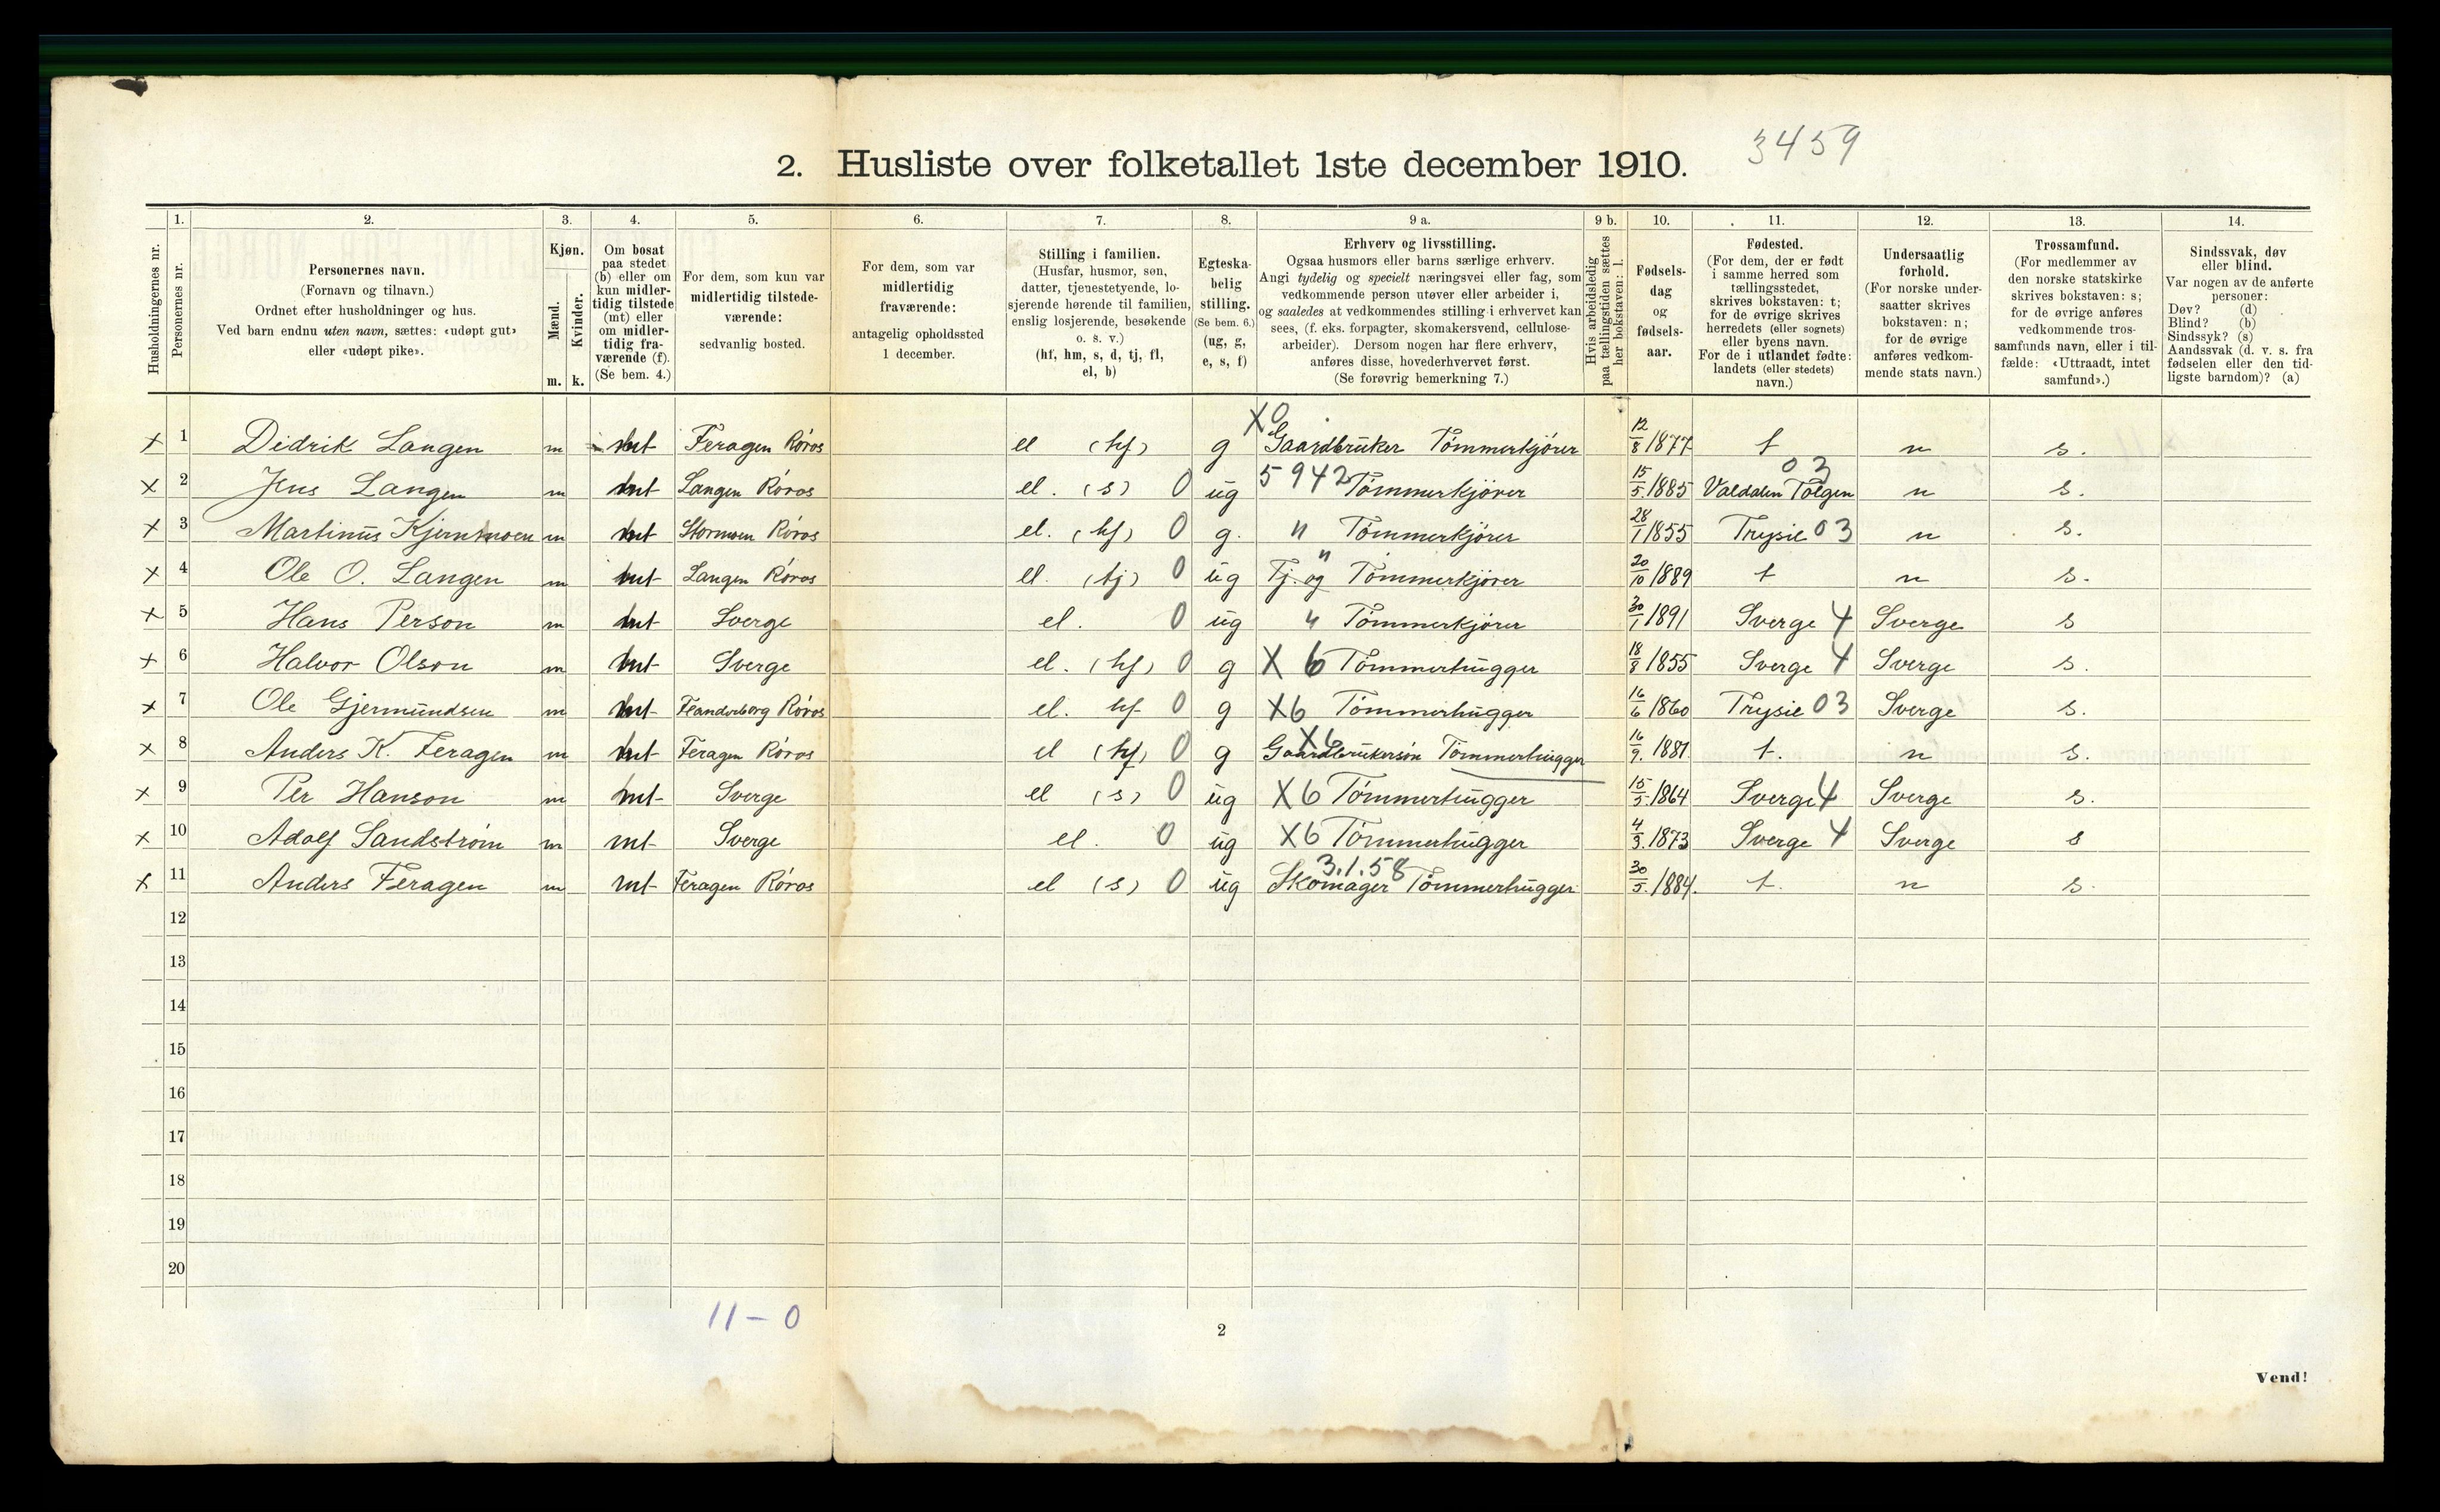 3459
2. Husliste over folketallet 1ste december 1910.
Husholdningernes nr.
1.
Personernes nr.
2.
Personernes navn.
(Fornavn og tilnavn.)
Ordnet efter husholdninger og hus.
Ved barn endnu uten navn, sættes: «udøpt gut»
eller «udøpt pike».
3.
Kjøn.
Mænd.
Kvinder.
m. k.
4.
Om bosat
paa stedet
(b) eller om
kun midler-
tidig tilstede
(mt) eller
om midler-
tidig fra-
værende (f).
(Se bem. 4.)
5.
For dem, som kun var
midlertidig tilstede-
værende:
sedvanlig bosted.
6.
For dem, som var
midlertidig
fraværende:
antagelig opholdssted
1 december.
7.
Stilling i familien.
(Husfar, husmor, søn,
datter, tjenestetyende, lo-
sjerende hørende til familien,
enslig losjerende, besøkende
o. s. v.)
(hf, hm, s, d, tj, fl,
el, b)
8.
Egteska-
belig
stilling.
(Se bem. 6.)
(ug, g,
e, s, f)
9 a.
Erhverv og livsstilling.
Ogsaa husmors eller barns særlige erhverv.
Angi tydelig og specielt næringsvei eller fag, som
vedkommende person utøver eller arbeider i,
og saaledes at vedkommendes stilling i erhvervet kan
sees, (f. eks. forpagter, skomakersvend, cellulose-
arbeider). Dersom nogen har flere erhverv,
anføres disse, hovederhvervet først.
(Se forøvrig bemerkning 7.)
9 b.
Hvis arbeidsledig
paa tællingstiden sættes
her bokstaven: l.
10.
Fødsels-
dag
og
fødsels-
aar.
11.
Fødested.
(For dem, der er født
i samme herred som
tællingsstedet,
skrives bokstaven: t;
for de øvrige skrives
herredets (eller sognets)
eller byens navn.
For de i utlandet fødte:
landets (eller stedets)
navn.)
12.
Undersaatlig
forhold.
(For norske under-
saatter skrives
bokstaven: n;
for de øvrige
anføres vedkom-
mende stats navn.)
13.
Trossamfund.
(For medlemmer av
den norske statskirke
skrives bokstaven: s;
for de øvrige anføres
vedkommende tros-
samfunds navn, eller i til-
fælde: «Uttraadt, intet
samfund».)
14.
Sindssvak, døv
eller blind.
Var nogen av de anførte
personer:
Døv? (d)
Blind? (b)
Sindssyk? (s)
Aandssvak (d. v. s. fra
fødselen eller den tid-
ligste barndom)? (a)
X 0
x 1 Didrik Langen m mt Feragen Røros el (hf) g Gaardbruker Tømmerkjører 12/8 1877 t n s.
x 2 Jens Langen m mt Langen Røros el. (s) 0 ug 5942 Tømmerkjører 15/5. 1885 Valdalen Tolgen 03 n s.
x 3 Martinus Kjernmoen m mt Stormoen Røros el. (hf) 0 g. " Tømmerkjører 28/1 1855 Trysil 03 n s.
x 4 Ole O. Langen m mt Langen Røros el. (tj) 0 ug Tj. og " Tømmerkjører 20/10 1889 t n s.
x 5 Hans Person m mt Sverge el. 0 ug " Tømmerkjører 30/1 1891 Sverge 4 Sverge s
x 6 Halvor Olson m mt Sverge el. (hf) 0 g X 6 Tømmerhugger 18/8 1855 Sverge 4 Sverge s.
x 7 Ole Gjermundsen m mt Flanderborg Røros el. hf 0 g X6 Tømmerhugger 16/6 1860 Trysil 03 Sverge s.
x 8 Anders K. Feragen m mt Feragen Røros el (hf) 0 g X6 Gaardbrukersøn Tømmerhugger 16/9. 1881. t. n s.
x 9 Per Hanson m mt Sverge el (s) 0 ug X6 Tømmerhugger 15/5. 1864 Sverge 4 Sverge s.
x 10 Adolf Sandstrøm m mt Sverge el. 0 ug X6 Tømmerhugger 4/3. 1873 Sverge 4 Sverge s
3.1.58
x 11 Anders Feragen m mt Feragen Røros el (s) 0 ug Skomager Tømmerhugger 30/5. 1884. t. n s.
12
13
14
15
16
17
18
19
20
11 - 0
2
Vend!